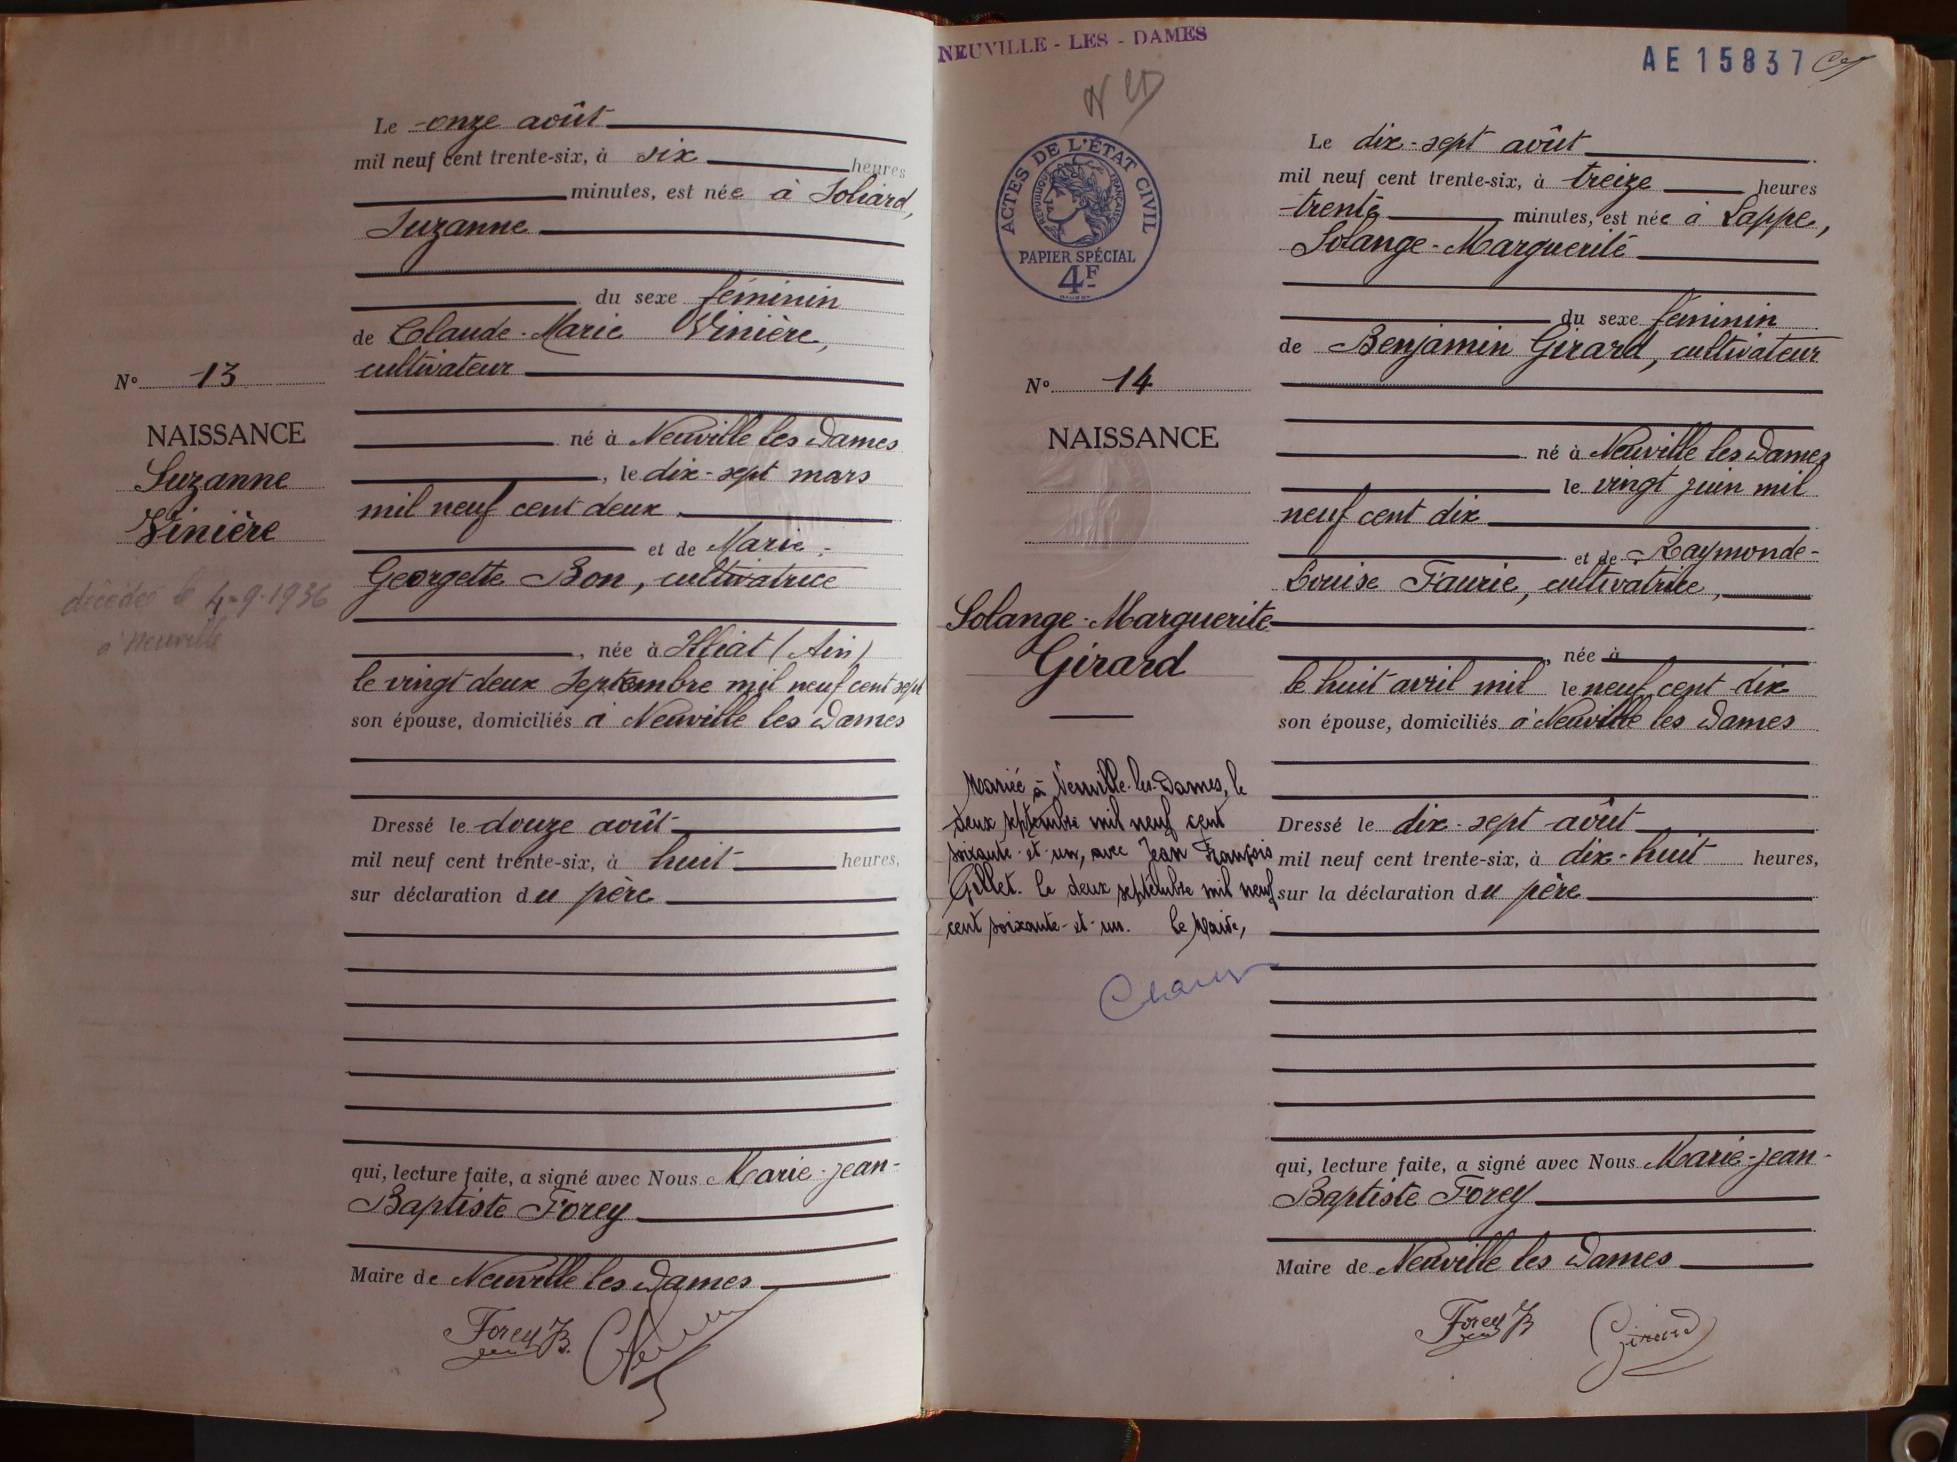 Le onze août
mil neuf cent trente-six, à six heures
minutes, est née à Soliard,
Suzanne
du sexe féminin
de Claude-Marie Vinière,
cultivateur
N° 13
NAISSANCE
Suzanne
Vinière
décédée le 4-9-1936
à Neuville
né à Neuville les Dames
, le dix-sept mars
mil neuf cent deux
et de Marie-
Georgette Bon, cultivatrice
, née à Illiat (Ain)
le vingt deux Septembre mil neuf cent sept
son épouse, domiciliés à Neuville les Dames
Dressé le douze août
mil neuf cent trente-six, à huit heures,
sur déclaration du père
qui, lecture faite, a signé avec Nous Marie-Jean-
Baptiste Forey
Maire de Neuville les Dames
Forey JB.
NEUVILLE - LES - DAMES
AE 15837
ACTES DE L'ÉTAT CIVIL
RÉPUBLIQUE FRANÇAISE
PAPIER SPÉCIAL
4F
Le dix-sept août
mil neuf cent trente-six, à treize heures
trente minutes, est née à Lappe,
Solange-Marguerite
du sexe féminin
de Benjamin Girard, cultivateur
N° 14
NAISSANCE
Solange-Marguerite
Girard
né à Neuville les Dames
le vingt juin mil
neuf cent dix
et de Raymonde-
Louise Faurie, cultivatrice,
, née à
le huit avril mil le neuf cent dix
son épouse, domiciliés à Neuville les Dames
Mariée à Neuville-les-Dames, le
deux septembre mil neuf cent
soixante-et-un, avec Jean François
Gillet. le deux septembre mil neuf
cent soixante-et-un. Le Maire,
Dressé le dix-sept août
mil neuf cent trente-six, à dix-huit heures,
sur la déclaration du père
qui, lecture faite, a signé avec Nous Marie-Jean-
Baptiste Forey
Maire de Neuville les Dames
Forey JB
Girard